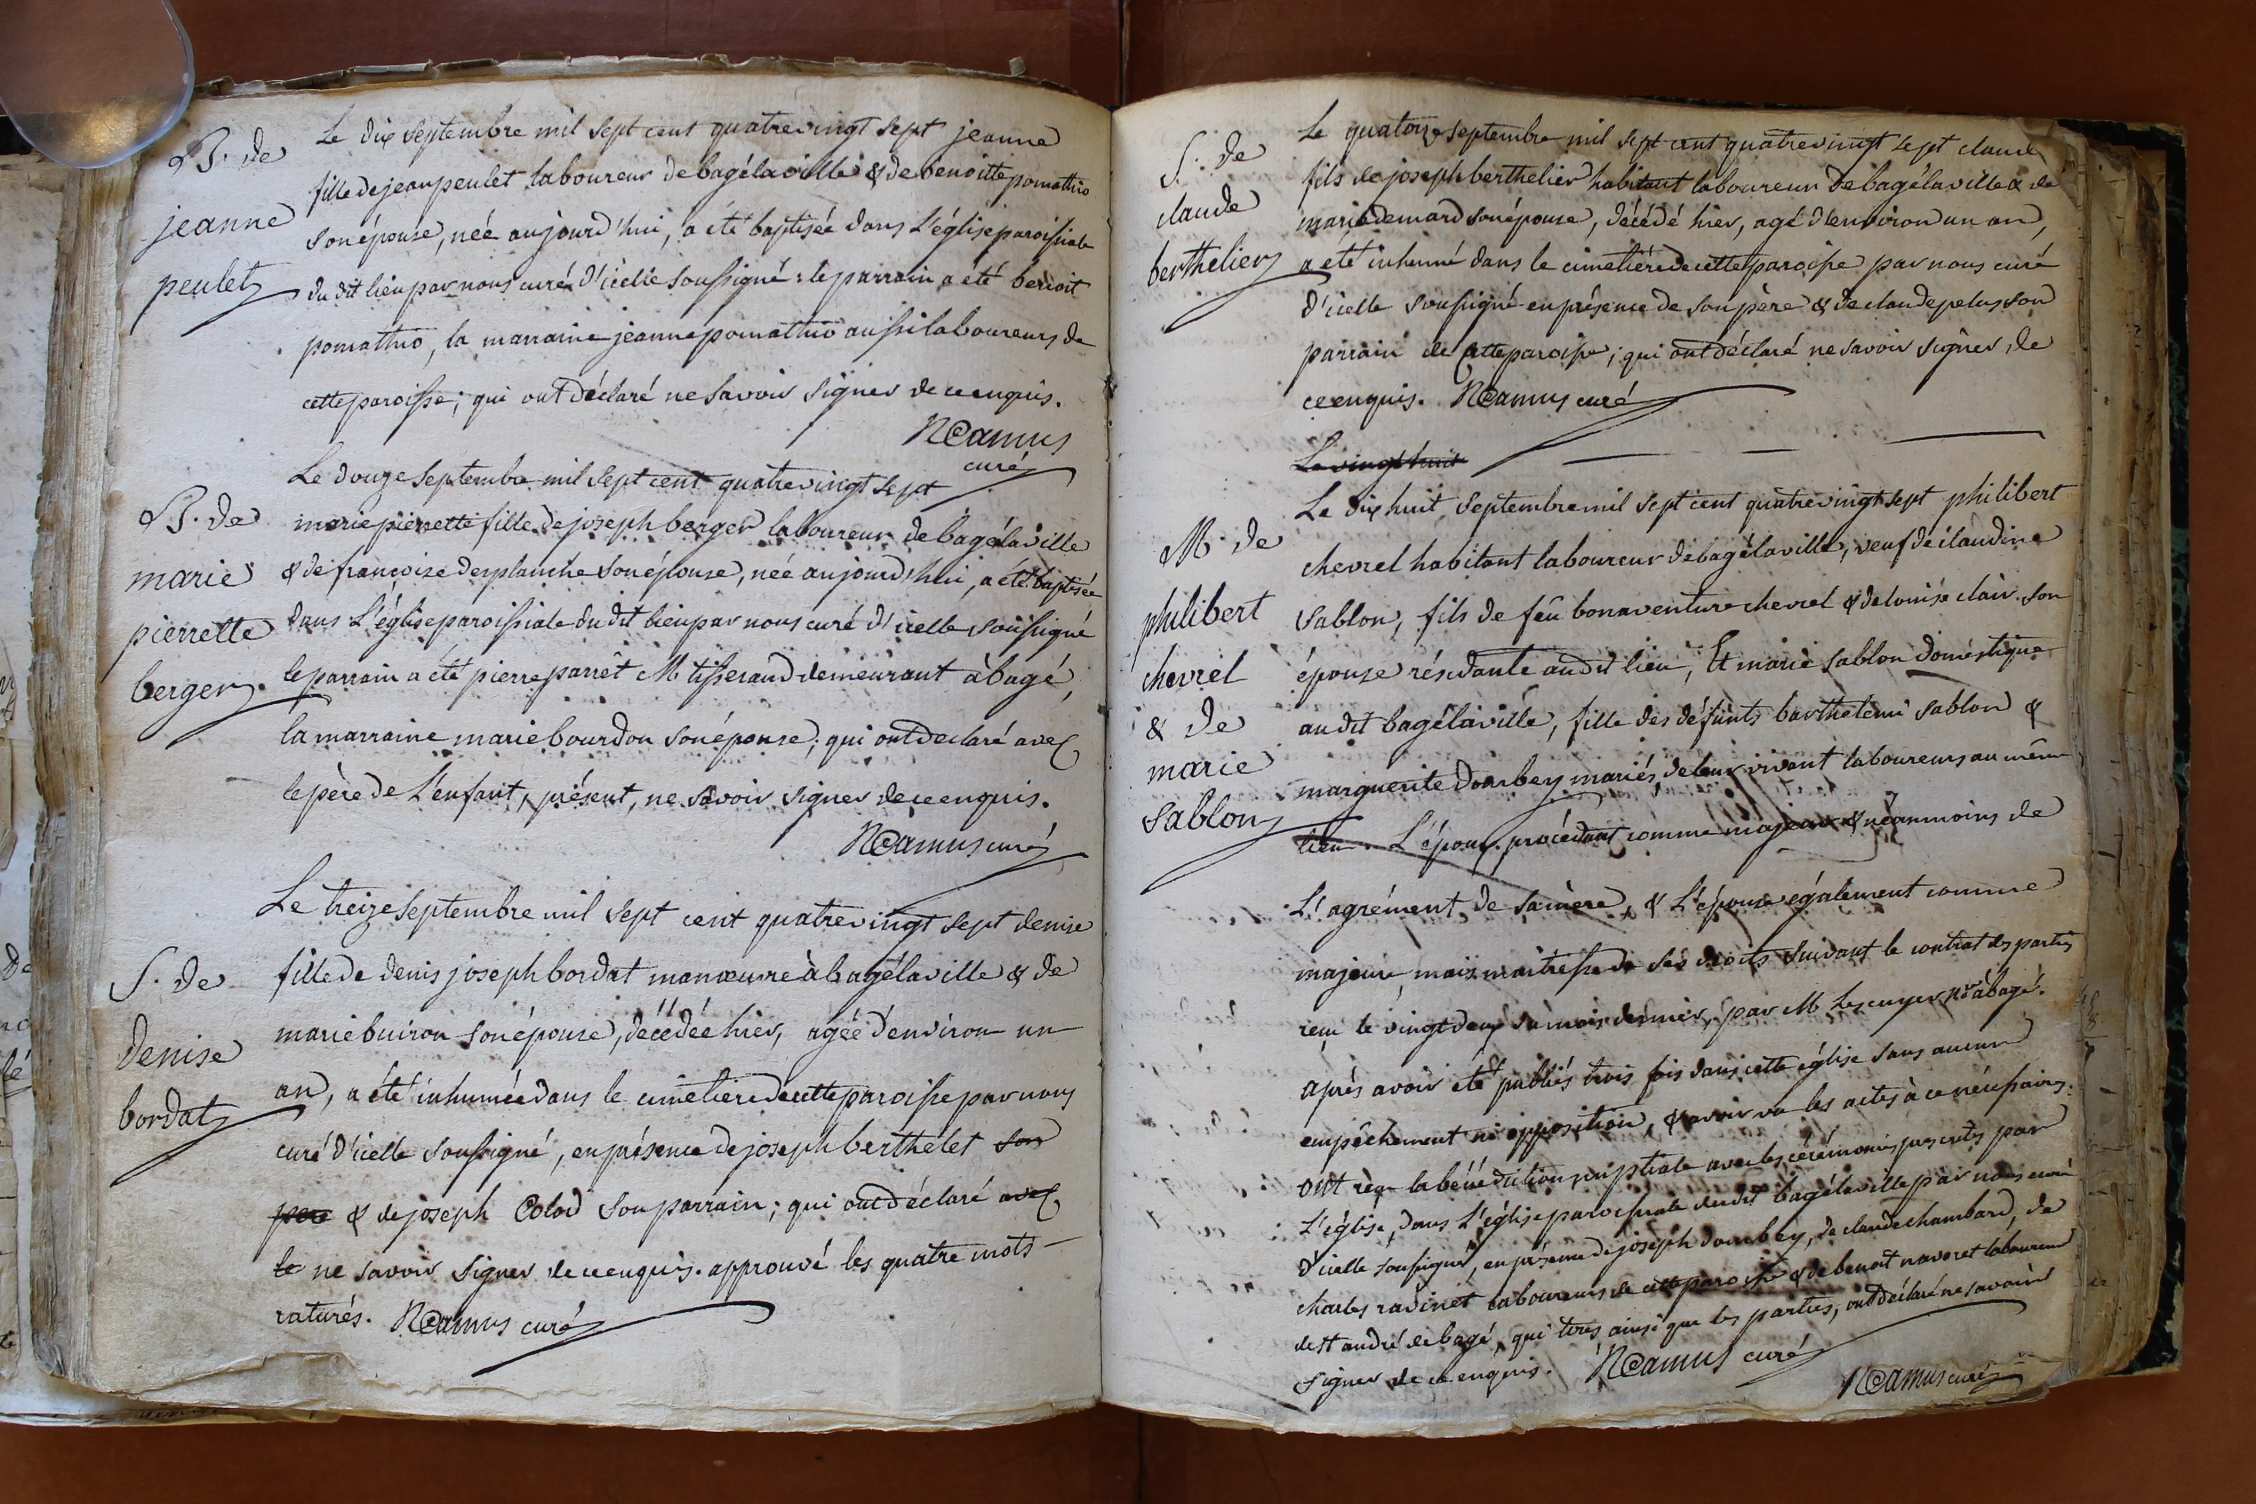 B. de
jeanne
peulet
Le dix septembre mil sept cent quatrevingt sept jeanne
fille de jean peulet laboureur de bagélaville & de benoitte pomathio
son épouse, née aujourd'hui, a été baptisée dans L'église paroissiale
du dit lieu par nous curé d'icelle soussigné : le parrain a été benoit
pomathio, la marraine jeanne pomathio aussi laboureurs de
cette paroisse ; qui ont déclaré ne savoir signer de ce enquis.
NCamus
curé
B. de
marie
pierrette
berger
Le douze septembre mil sept cent quatrevingt sept
marie pierrette fille de joseph berger laboureur de bagélaville
& de françoise desplanche son épouse, née aujourd'hui, a été baptisée
dans L'église paroissiale du dit lieu par nous curé d'icelle soussigné
le parrain a été pierre parrêt M tisserand demeurant à bagé,
la marraine marie bourdon son épouse ; qui ont déclaré avec
le père de L'enfant, présent, ne savoir signer de ce enquis.
NCamus curé
S. de
denise
bordat
Le treize septembre mil sept cent quatrevingt sept denise
fille de denis joseph bordat manœuvre à bagélaville & de
marie buiron son épouse, décédée hier, agée d'environ un
an, a été inhumée dans le cimetière de cette paroisse par nous
curé d'icelle soussigné, en présence de joseph berthelet son
pere & de joseph Colod son parrain ; qui ont déclaré avec
le ne savoir signer de ce enquis. approuvé les quatre mots
raturés. NCamus curé
S. de
claude
berthelier
Le quatorze septembre mil sept cent quatrevingt sept claude
fils de joseph berthelier habitant laboureur de bagélaville & de
marie demard son épouse, décédé hier, agé d'environ un an,
a été inhumé dans le cimetière de cette paroisse par nous curé
d'icelle soussigné en présence de son père & de claude pelus son
parrain de cette paroisse ; qui ont déclaré ne savoir signer, de
ce enquis. NCamus curé
Le vingt huit
M. de
philibert
chevrel
& de
marie
sablon
Le dix huit septembre mil sept cent quatrevingt sept philibert
chevrel habitant laboureur de bagélaville, veuf de claudine
sablon, fils de feu bonaventure chevrel & de louise clair son
épouse résidante au dit lieu, Et marie sablon doméstique
au dit bagélaville, fille des défunts barthelemi sablon &
marguerite dombey mariés, de leur vivant laboureurs au même
lieu. L'époux procédant comme majeur & néanmoins de
L'agrément de sa mère, & L'épouse également comme
majeure, mais maîtresse de ses droits suivant le contrat des parties
reçu le vingt deux du mois dernier, par M Lescuyer nre à bagé.
après avoir été publiés trois fois dans cette église sans aucun
empêchement ni opposition, & avoir vu les actes à ce nécessaires.
ont reçu la bénédiction nuptiale avec les cérémonies prescrites par
L'église, dans L'église paroissiale du dit bagélaville par nous curé
d'icelle soussigné, en présence de joseph dombey, de claude chambard, de
charles radinet laboureurs de cette paroisse & de benoit navoret laboureur
de st andré de bagé, qui tous ainsi que les parties, ont déclaré ne savoir
signer de ce enquis. NCamus curé
NCamus curé